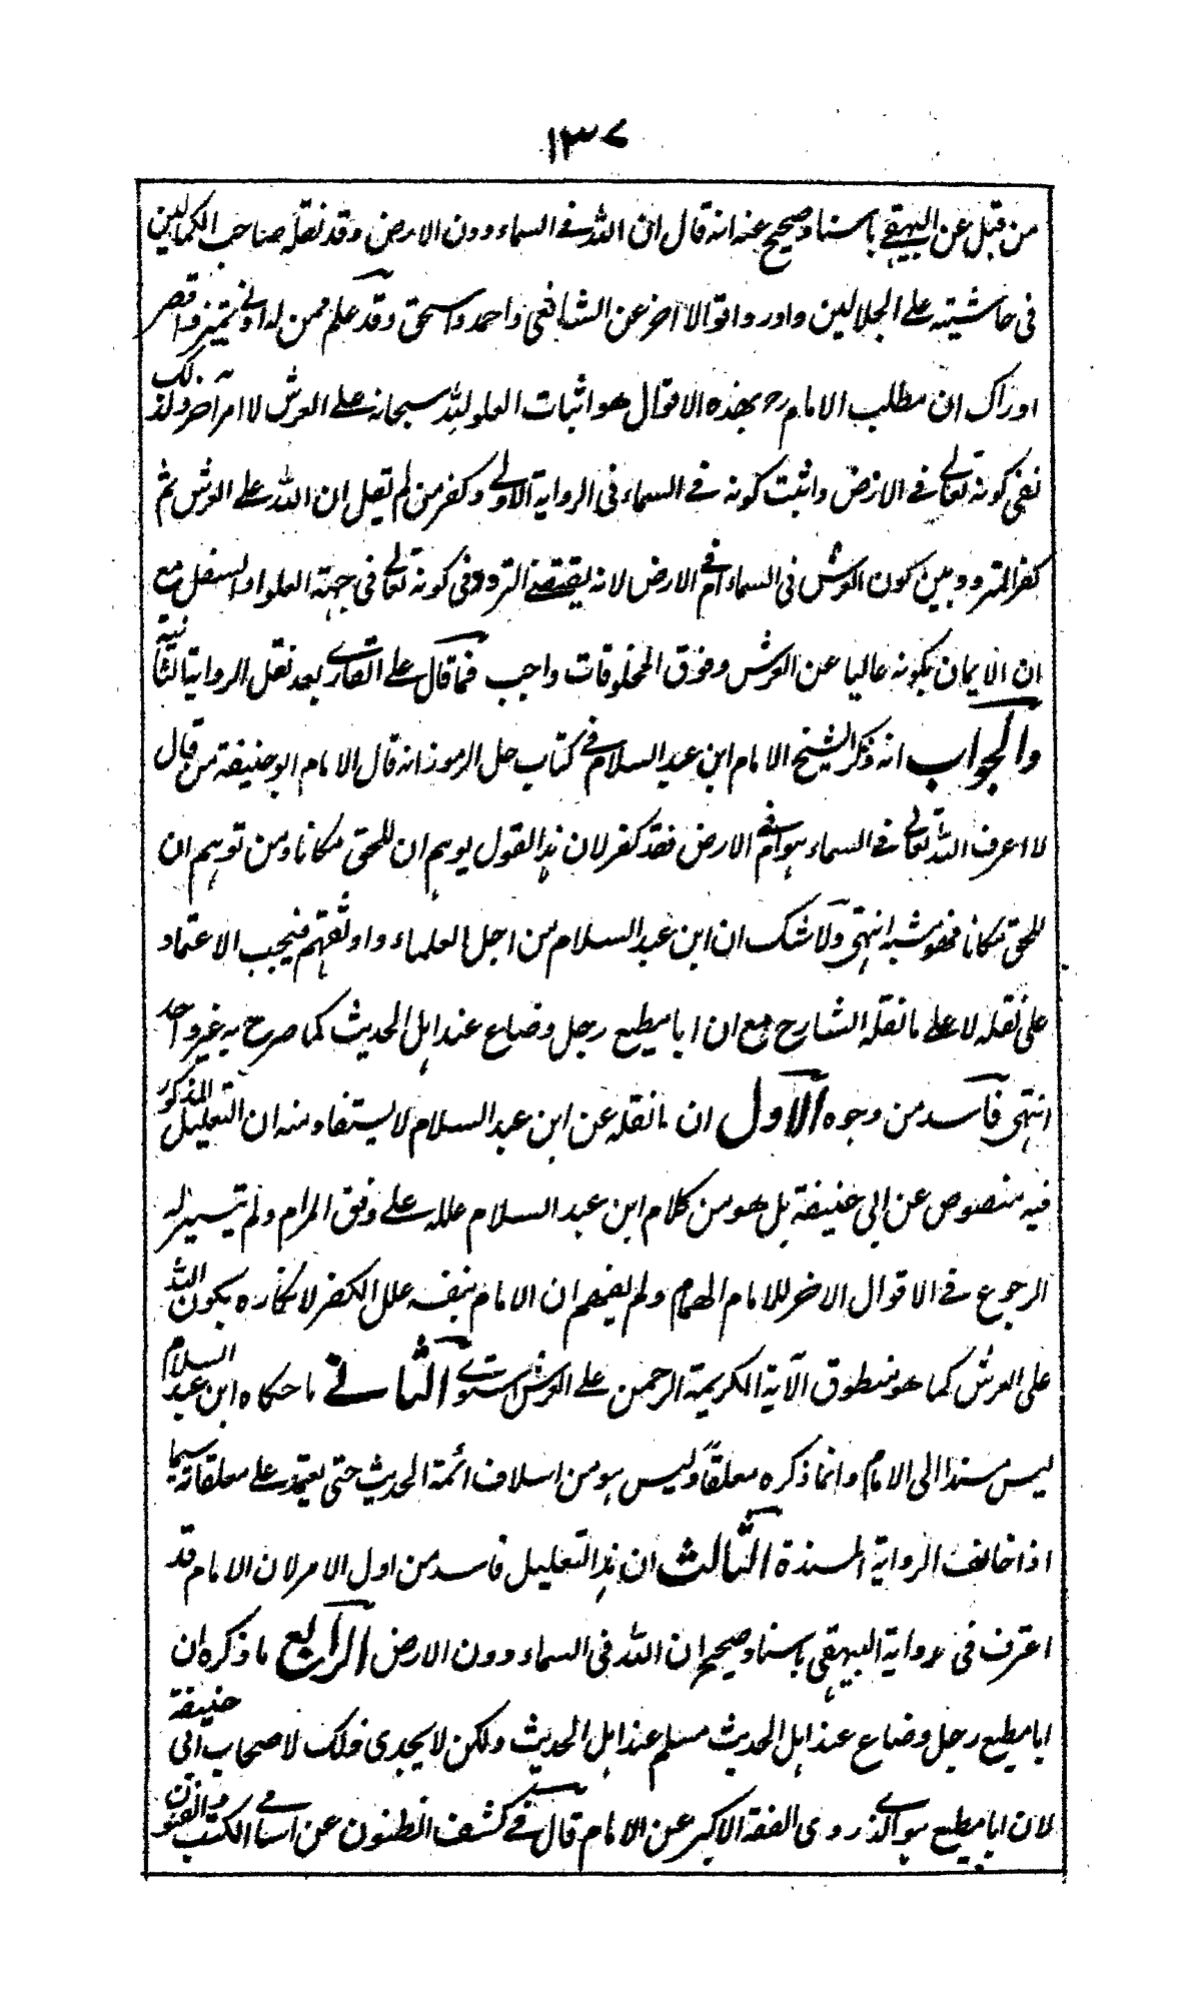 ١٣٧
من قبل عن البيهقي باسناد صحيح عنه انه قال ان الله في السماء دون الارض وقد نقله صاحب الكمالين
في حاشيته على الجلالين واورد اقوالا اخر عن الشافعي واحمد واسحق وقد علم ممن له ادنى تميز واقصر
ادراك ان مطلب الامام رح بهذه الاقوال هو اثبات العلو لله سبحانه على العرش لا امر اخر ولذلك
نفى كونه تعالى في الارض واثبت كونه في السماء في الرواية الاولى وكفر من لم يقل ان الله على العرش ثم
كفر المتردد بين كون العرش في السماء ام في الارض لانه يقتضي التردد في كونه تعالى في جهة العلو او السفل مع
ان الايمان بكونه عاليا عن العرش وفوق المخلوقات واجب فما قال على القاري بعد نقل الرواية الثانية
والجواب انه ذكر الشيخ الامام ابن عبد السلام في كتاب حل الرموز انه قال الامام ابو حنيفة من قال
لا اعرف الله تعالى في السماء هو ام في الارض فقد كفر لان هذا القول يوهم ان للحق مكانا ومن توهم ان
للحق مكانا فهو مشبه انتهى ولا شك ان ابن عبد السلام من اجل العلماء واوثقهم فيجب الاعتماد
على نقله لا على ما نقله الشارح مع ان ابا مطيع رجل وضاع عند اهل الحديث كما صرح به غير واحد
انتهى فاسد من وجوه الاول ان ما نقله عن ابن عبد السلام لا يستفاد منه ان التعليل المذكور
فيه منصوص عن ابي حنيفة بل هو من كلام ابن عبد السلام علله على وفق المرام ولم تيسير له
الرجوع في الاقوال الاخر للامام الهمام ولم يفهم ان الامام بنفسه علل الكفر لانكاره بكون الله
على العرش كما هو منطوق الآية الكريمة الرحمن على العرش استوى الثاني ما حكاه ابن عبد السلام
ليس مسندا الى الامام وانما ذكره معلقاً وليس هو من اسلاف ائمة الحديث حتى يعتمد على معلقاته سيما
اذا خالف الرواية المسندة الثالث ان هذا التعليل فاسد من اول الامر لان الامام قد
اعترف في رواية البيهقي باسناد صحيح ان الله في السماء دون الارض الرابع ما ذكره ان
ابا مطيع رجل وضاع عند اهل الحديث مسلم عند اهل الحديث ولكن لا يجدى ذلك لاصحاب ابي حنيفة
لان ابا مطيع هو الذي روى الفقه الاكبر عن الامام قال في كشف الظنون عن اسامي الكتب والفنون